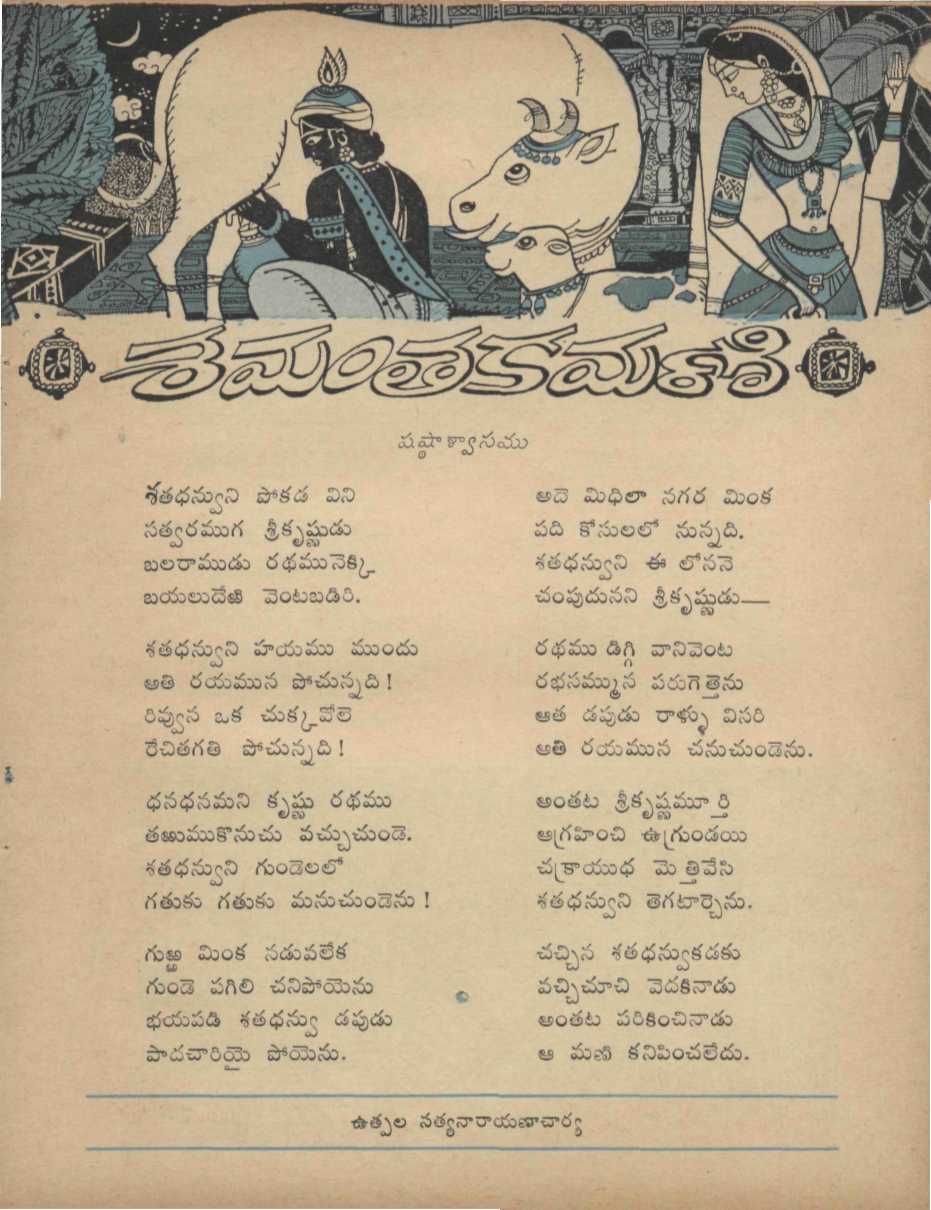 శమంతకమణి
షష్ఠాశ్వాసము
శతధన్వుని పోకడ విని
సత్వరముగ శ్రీకృష్ణుడు
బలరాముడు రథమునెక్కి
బయలుదేఱి వెంటబడిరి.
శతధన్వుని హయము ముందు
అతి రయమున పోచున్నది!
రివ్వున ఒక చుక్కవోలె
రేచితగతి పోచున్నది!
ధనధనమని కృష్ణు రథము
తఱుముకొనుచు వచ్చుచుండె.
శతధన్వుని గుండెలలో
గతుకు గతుకు మనుచుండెను!
గుఱ్ఱ మింక నడువలేక
గుండె పగిలి చనిపోయెను
భయపడి శతధన్వు డపుడు
పాదచారియై పోయెను.
అదె మిధిలా నగర మింక
పది కోసులలో నున్నది.
శతధన్వుని ఈ లోననె
చంపుదునని శ్రీకృష్ణుడు—
రథము డిగ్గి వానివెంట
రభసమ్మున పరుగెత్తెను
ఆత డపుడు రాళ్ళు విసరి
అతి రయమున చనుచుండెను.
అంతట శ్రీకృష్ణమూర్తి
ఆగ్రహించి ఉగ్రుండయి
చక్రాయుధ మెత్తివేసి
శతధన్వుని తెగటార్చెను.
చచ్చిన శతధన్వుకడకు
వచ్చిచూచి వెదకినాడు
అంతట పరికించినాడు
ఆ మణి కనిపించలేదు.
ఉత్పల సత్యనారాయణాచార్య